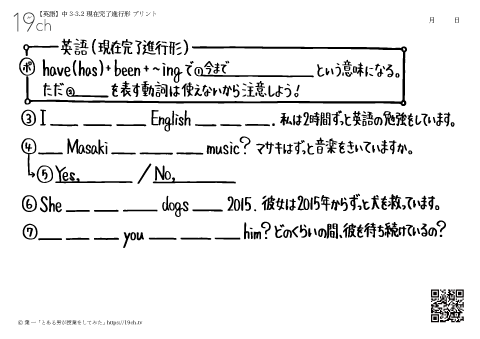 19ch
【英語】中 3-3.2 現在完了進行形 プリント
月 日
英語(現在完了進行形)
ポ have(has)+been+~ingで①今まで＿＿＿という意味になる。
ただ②＿＿＿を表す動詞は使えないから注意しよう!
③ I ＿ ＿ ＿ English ＿ ＿ ＿. 私は2時間ずっと英語の勉強をしています。
④ ＿ Masaki ＿ ＿ ＿ music? マサキはずっと音楽をきいていますか。
⑤ Yes, ＿＿＿ / No, ＿＿＿
⑥ She ＿ ＿ ＿ dogs ＿ 2015. 彼女は2015年からずっと犬を救っています。
⑦ ＿ ＿ ＿ you ＿ ＿ ＿ him? どのくらいの間、彼を待ち続けているの?
© 葉一「とある男が授業をしてみた」https://19ch.tv